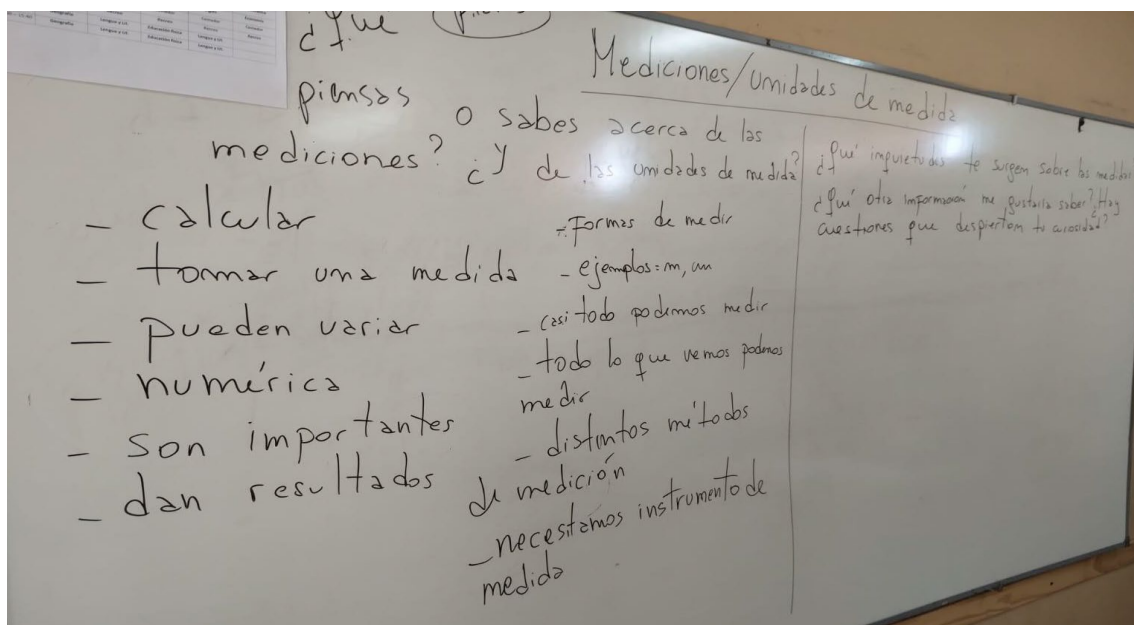 Mediciones/unidades de medida
¿Que
piensas
o sabes acerca de las
mediciones? ¿Y de las unidades de medida?
- calcular
- tomar una medida
- pueden variar
- numérica
- son importantes
- dan resultados
- Formas de medir
- ejemplos: m, cm
- casi todo podemos medir
- todo lo que vemos podemos
medir
- distintos métodos
de medición
- necesitamos instrumento de
medida
¿Qué inquietudes te surgen sobre las
¿Qué otra información me gustaría saber? ¿Hay
cuestiones que despierten tu curiosidad?